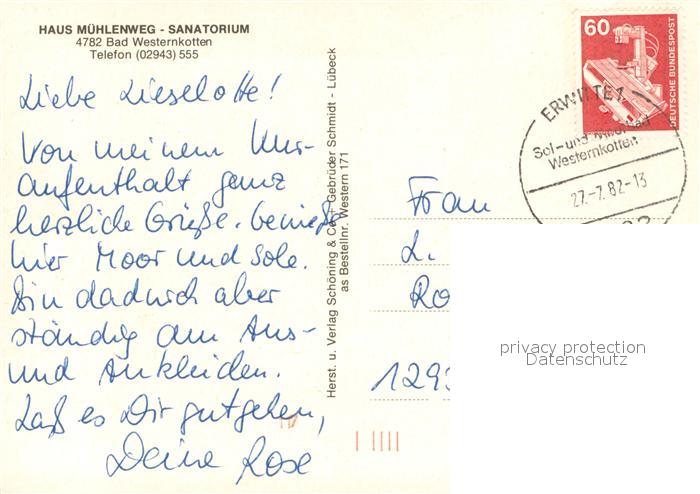 HAUS MÜHLENWEG - SANATORIUM
4782 Bad Westernkotten
Telefon (02943) 555
Liebe Lieselotte!
Von meinem Kur-
aufenthalt ganz
herzliche Grüße. Genieße
hier Moor und Sole.
Bin dadurch aber
ständig am Aus-
und Ankleiden.
Laß es Dir gutgehen,
Deine Rose
Herst. u. Verlag Schöning & Co + Gebrüder Schmidt - Lübeck
as Bestellnr. Western 171
60
DEUTSCHE BUNDESPOST
ERWITTE 1
Sol- und
Westernkotten
27.-7.82-13
Frau
L.
Ro
1293
privacy protection
Datenschutz